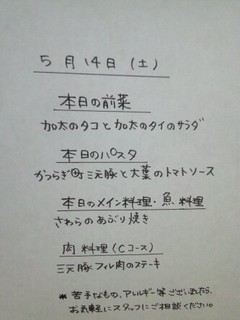 5月14日(土)
本日の前菜
加太のタコと加太のタイのサラダ
本日のパスタ
かつらぎ町三元豚と大葉のトマトソース
本日のメイン料理・魚料理
さわらのあぶり焼き
肉料理(Cコース)
三元豚フィレ肉のステーキ
※苦手なもの、アレルギー等ございましたら、
お気軽にスタッフにご相談ください。